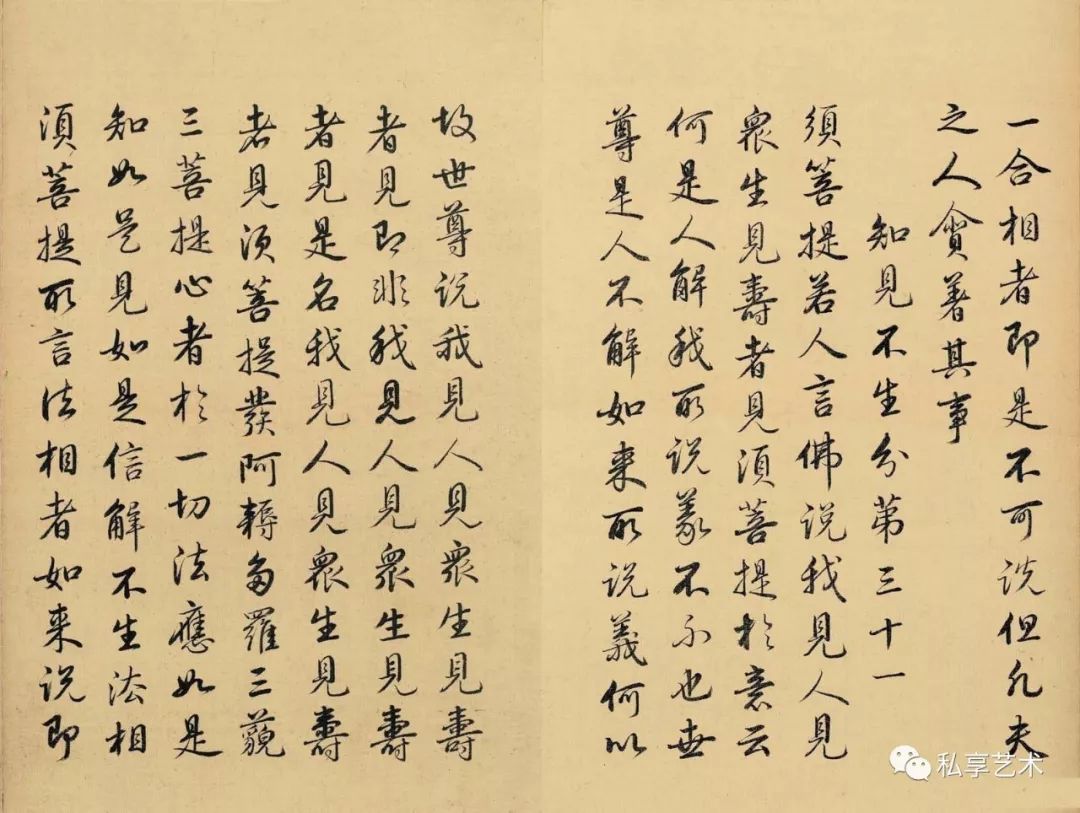 一合相者即是不可说但凡夫
之人貪著其事
知見不生分第三十一
須菩提若人言佛说我見人見
衆生見壽者見須菩提於意云
何是人解我所说義不不也世
尊是人不解如来所说義何以
故世尊说我見人見衆生見壽
者見即非我見人見衆生見壽
者見是名我見人見衆生見壽
者見須菩提發阿耨多羅三藐
三菩提心者於一切法應如是
知如是見如是信解不生法相
須菩提所言法相者如来说即
私享艺术